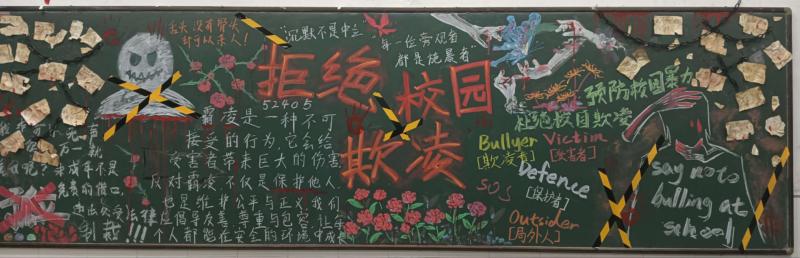 舌头没有骨头
却可以杀人！
"沉默不是中立
每一位旁观者
都是施暴者"
拒绝校园
欺凌
52405
霸凌是一种不可
接受的行为，它会给
受害者带来巨大的伤害
反对霸凌不仅是保护他人
也是维护公平与正义，我们
应倡导友善尊重与包容，让每
个人都能在安全的环境中成长
未成年不是
免责的借口
制裁!!!
预防校园暴力
杜绝校园欺凌
Bullyer
[欺凌者]
Victim
[受害者]
SOS
Defence
[保护者]
Outsider
[局外人]
say no to
bulling at
school